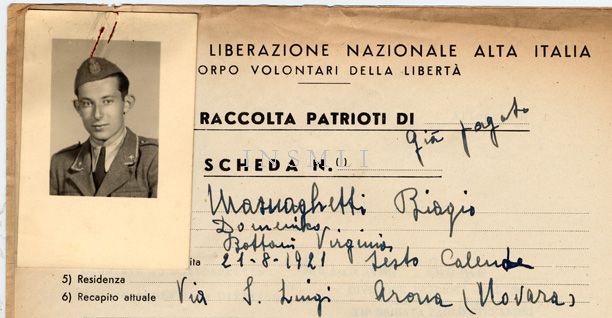 LIBERAZIONE NAZIONALE ALTA ITALIA
ORPO VOLONTARI DELLA LIBERTÀ
RACCOLTA PATRIOTI DI
già pagato
SCHEDA N.
INSMLI
Masnaghetti Biagio
Domenico
Bottani Virginia
ita 21-8-1921 Sesto Calende
5) Residenza
6) Recapito attuale Via S. Luigi Arona (Novara)